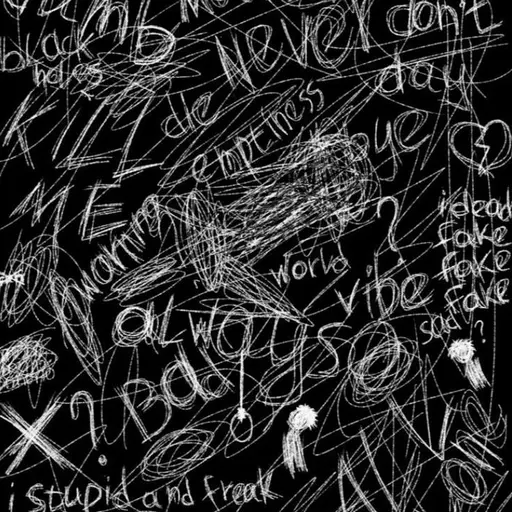 dumb
Never
don't
black
holes
day
KILL
die
emptiness
bye
ME
warning
?
i dead
fake
fake
fake
sad
?
world
vibe
always
Bad
X ?
Alive
i stupid and freak